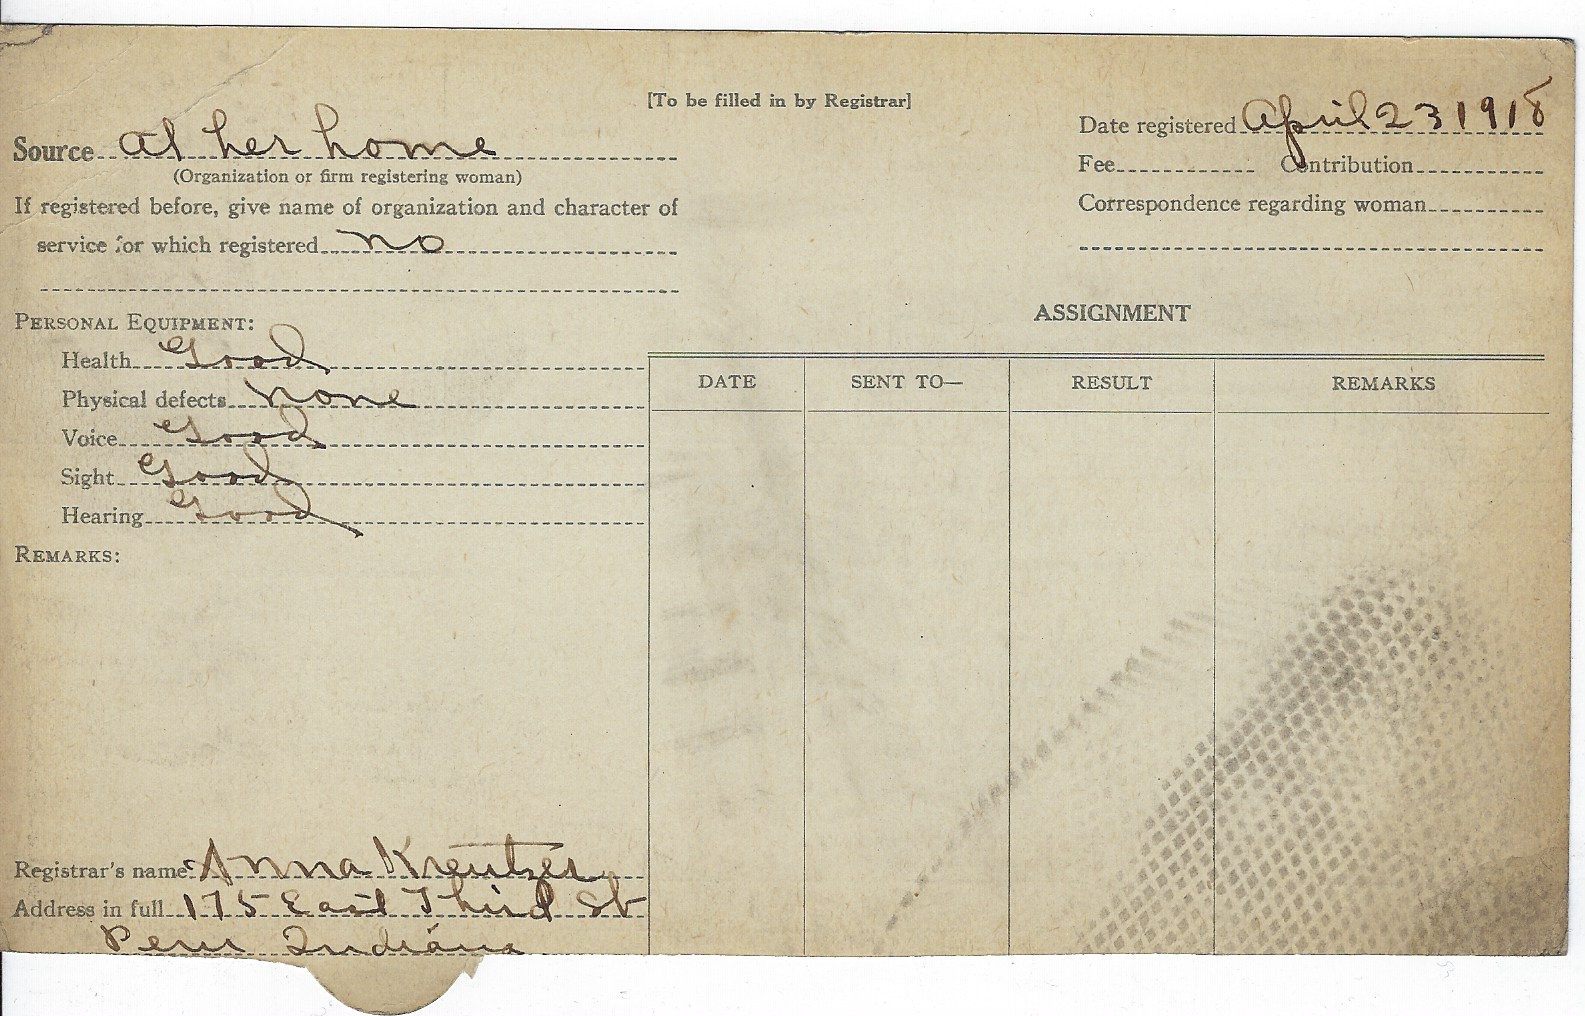 [To be filled in by Registrar]
Source at her home
(Organization or firm registering woman)
If registered before, give name of organization and character of
service for which registered no
Date registered April 23 1918
Fee Contribution
Correspondence regarding woman
PERSONAL EQUIPMENT:
Health Good
Physical defects none
Voice Good
Sight Good
Hearing Good
REMARKS:
ASSIGNMENT
DATE SENT TO— RESULT REMARKS
Registrar's name Anna Kreutzer
Address in full 175 East Third St
Peru Indiana